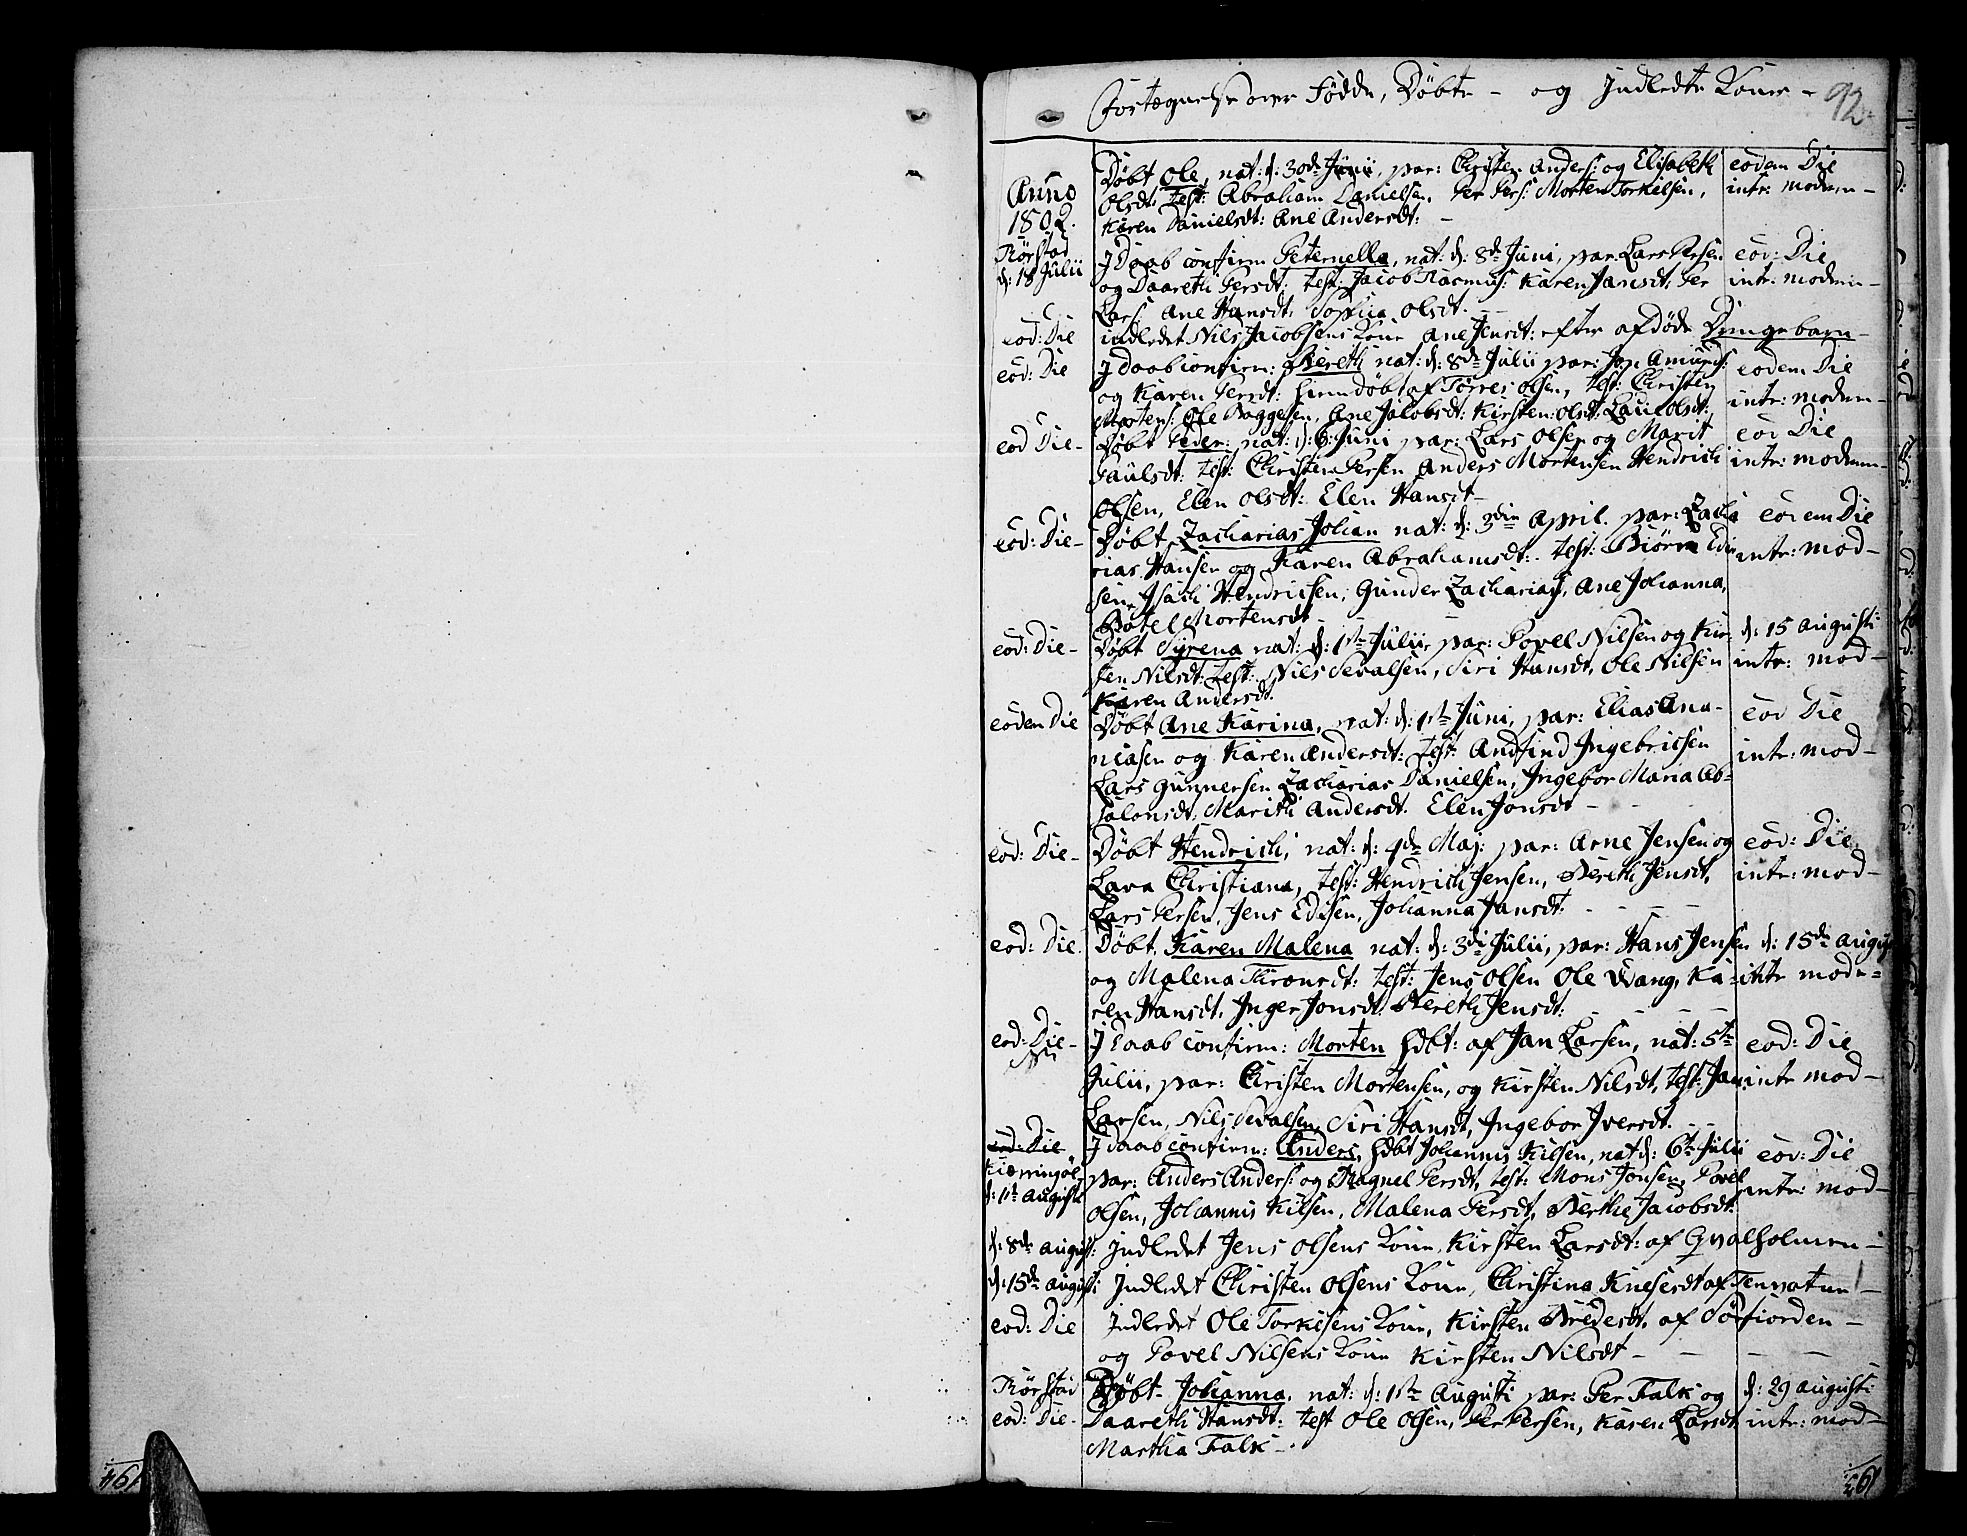 Fortegnelse over Födde, Döbte - og Indledte Koner - 92
Anno 1802.
Rörstad d: 18 Julii
Döbt Ole, nat: d: 30de Junii, par: Christen Anders: og Elisabeth
Olsdt: test: Abraham Danielsen, Per Pers: Morten Torkelsen,
Karen Danielsdt: Ane Andersdt: -
eodem Die
intr: modren -
I Daab confirm Peternella, nat: d: 8de Juni, par Lars Persen
og Daareth Persdt: test: Jacob Rasmus: Karen Jansdt, Per
Lars: Ane Hansdt, Sophia Olsdt. -
eod: Die
intr: modren -
eod: Die
indledet Nils Jacobsens Kone Ane Jensdt: efter afdöde Drengebarn -
eod: Die
I Daab confirm: Bereth nat: d: 8de Julii par: Jon Amunds:
og Karen Persdt: hiemdöbt af Torres Olsen, test: Christen
Mortens: Ole Baggesen, Ane Jacobsdt: Kirsten Olsdt: Lava Olsdt:
eodem Die
intr: modren -
eod Die -
Döbt Peder: nat: d: 6: Juni par: Lars Olsen og Marit
Paulsdt: test: Christen Persen Anders Mortensen Hendrich
Olsen, Elen Olsdt: Elen Hansdt -
eod Die
intr: modren -
eod: Die -
Döbt Zacharias Johan nat: d: 3die April. par: Zacha
rias Hansen og Karen Abrahamsdt: - test: Biörn Edi
sen, Isach Hendrichsen, Gunder Zacharias, Ane Johanna,
Botel Mortensdt
eodem Die
intr: mod -
eod: Die -
Döbt Syrena nat: d: 1ste Julii, par: Povel Nilsen og Kir
sten Nilsdt: test: Nils Sevalsen, Siri Hansdt, Ole Nilsen
Karen Andersdt.
d: 15 Augusti
intr: mod -
eodem Die
Döbt Ane Karina, nat: d: 1ste Juni, par: Elias Ana-
niasen og Karen Andersdt: test: Andfind Ingebricsen
Lars Gunnersen Zacharias Danielsen, Ingebor Maria Ab=
salonsdt, Marith Andersdt. Elen Jonsdt -
eod Die
intr: mod -
eod: Die -
Döbt Hendrich, nat: d: 4de Maj: par: Arne Jensen og
Lava Christiana, test: Hendrich Jensen, Bereth Jensdt,
Lars Persen, Jens Edisen, Johanna Jansdt: -
eod: Die
intr: mod -
eod: Die
Döbt, Karen Malena nat: d: 3di Julii, par: Hans Jensen
og Malena Thronsdt: test: Jens Olsen Ole Wang, Ka=
ren Hansdt, Inger Jonsdt: Bereth Jensdt:
d: 15de Augus
intr modr=
eod: Die -
I Daab confirm: Morten hdbt: af Jan Larsen, nat: 5te
Julii, par: Christen Mortensen, og Kirsten Nilsdt, test: Jan
Larsen, Nils Sevalsen, Siri Hansdt, Ingebor Iversdt. -
eod: Die
intr mod -
eod: Die
Kierringöe d: 1te Augusti
I Daab confirm: Anders, hdbt Johannis Kilsen, nat d: 6te Julii
par: Anders Anders: og Ragnel Persdt, test: Mons Jonsen, Povel
Olsen, Johannis Kilsen, Malena Persdt, Berthe Jacobsdt:
eod: Die
intr: mod -
d: 8de August:
Indledet Jens Olsens Kone, Kirsten Larsdt: af Qvalholmen -
d: 15de August:
Indledet Christen Olsens Kone, Christina Knesersdt af Tennvatn -
eod: Die
Indledet Ole Torkesens Kone, Kirsten Bredesdt, af Sörfiorden -
og Povel Nilsens Kone Kirsten Nilsdt -
Rörstad
eod: Die -
Döbt Johanna, nat: d: 1ste Augusti par: Per Falk og
Daareth Hansdt: test Ole Olsen, Per Persen, Karen Larsdt
Martha Falk -
d: 29 Augusti
intr: mod -